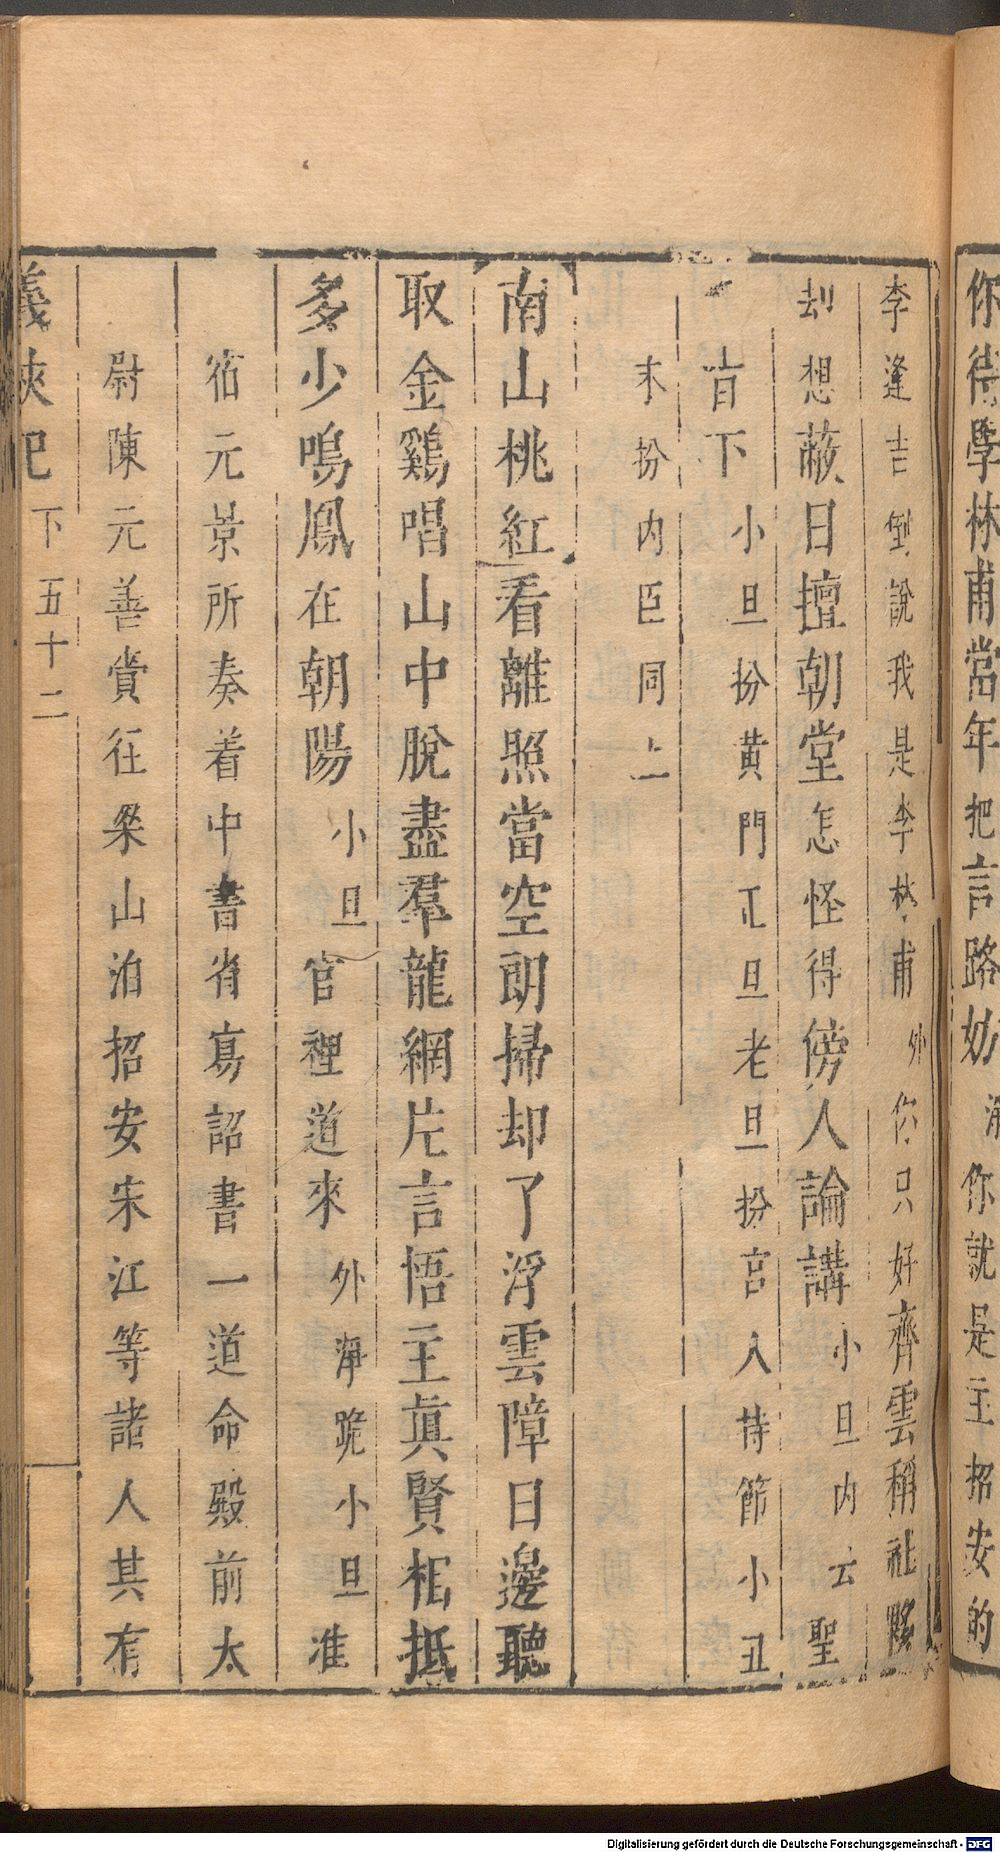 你待學林甫當年把言路妨 淨 你就是主招安的
李逢吉倒說我是李林甫 外 你只好齊雲稱社夥
却想蔽日擅朝堂怎怪得傍人論講 小旦內云 聖
旨下 小旦扮黃門正旦老旦扮宮人持節小丑
末扮內臣同上
南山桃紅看離照當空朗掃却了浮雲障日邊聽
取金鷄唱山中脫盡羣龍網片言悟主眞賢相抵
多少鳴鳳在朝陽 小旦 官裡道來 外淨跪小旦 准
宿元景所奏着中書省寫詔書一道命殿前太
尉陳元善賞往梁山泊招安宋江等諸人其有
義俠記 下 五十二
Digitalisierung gefördert durch die Deutsche Forschungsgemeinschaft - DFG